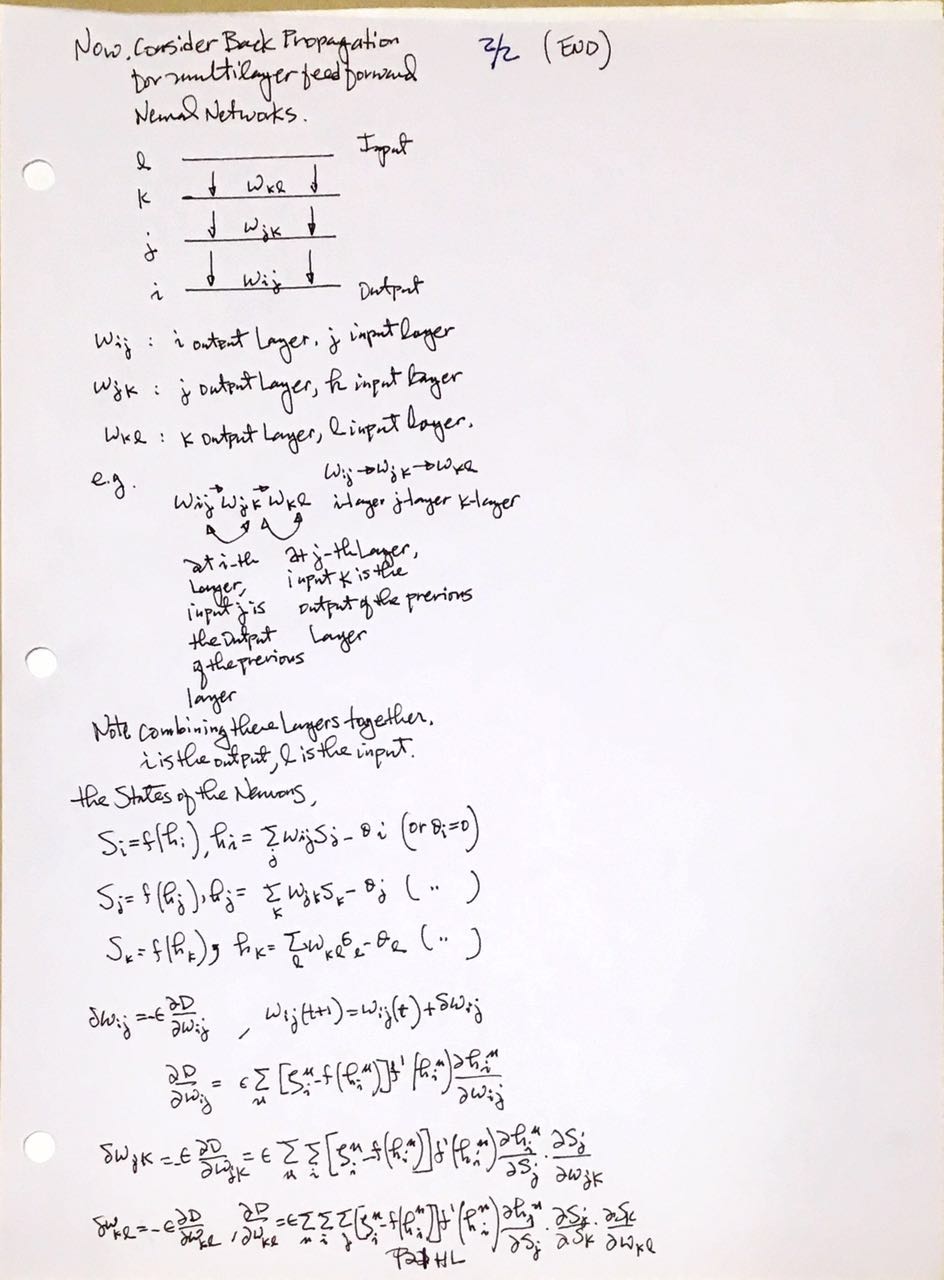 Now, Consider Back Propagation 2/2 (END)
for multilayer feedforward
Neural Networks.
l Input
k wkl
j wjk
i wij Output
wij : i output Layer, j input layer
wjk : j output Layer, k input layer
wkl : k output Layer, l input layer.
e.g. wij→wjk→wkl
wij wjk wkl i-layer j-layer k-layer
at i-th at j-th Layer,
Layer, input k is the
input j is output of the previous
the Output Layer
of the previous
layer
Note combining these Layers together,
i is the output, l is the input.
the States of the Neurons,
Si=f(hi), hi= Σj wijSj - θi (or θi=0)
Sj=f(hj), hj= Σk wjkSk - θj ( " )
Sk=f(hk), hk= Σl wklSl - θl ( " )
δwij=-ϵ ∂D/∂wij , wij(t+1)=wij(t)+δwij
∂D/∂wij = ϵ Σμ [ζiμ-f(hiμ)]f'(hiμ) ∂hiμ/∂wij
δwjk=-ϵ ∂D/∂wjk = ϵ Σμ Σi [ζiμ-f(hiμ)]f'(hiμ) ∂hiμ/∂Sj · ∂Sj/∂wjk
δwkl=-ϵ ∂D/∂wkl , ∂D/∂wkl = ϵ Σμ Σi Σj [ζiμ-f(hiμ)]f'(hiμ) ∂hiμ/∂Sj · ∂Sj/∂Sk · ∂Sk/∂wkl